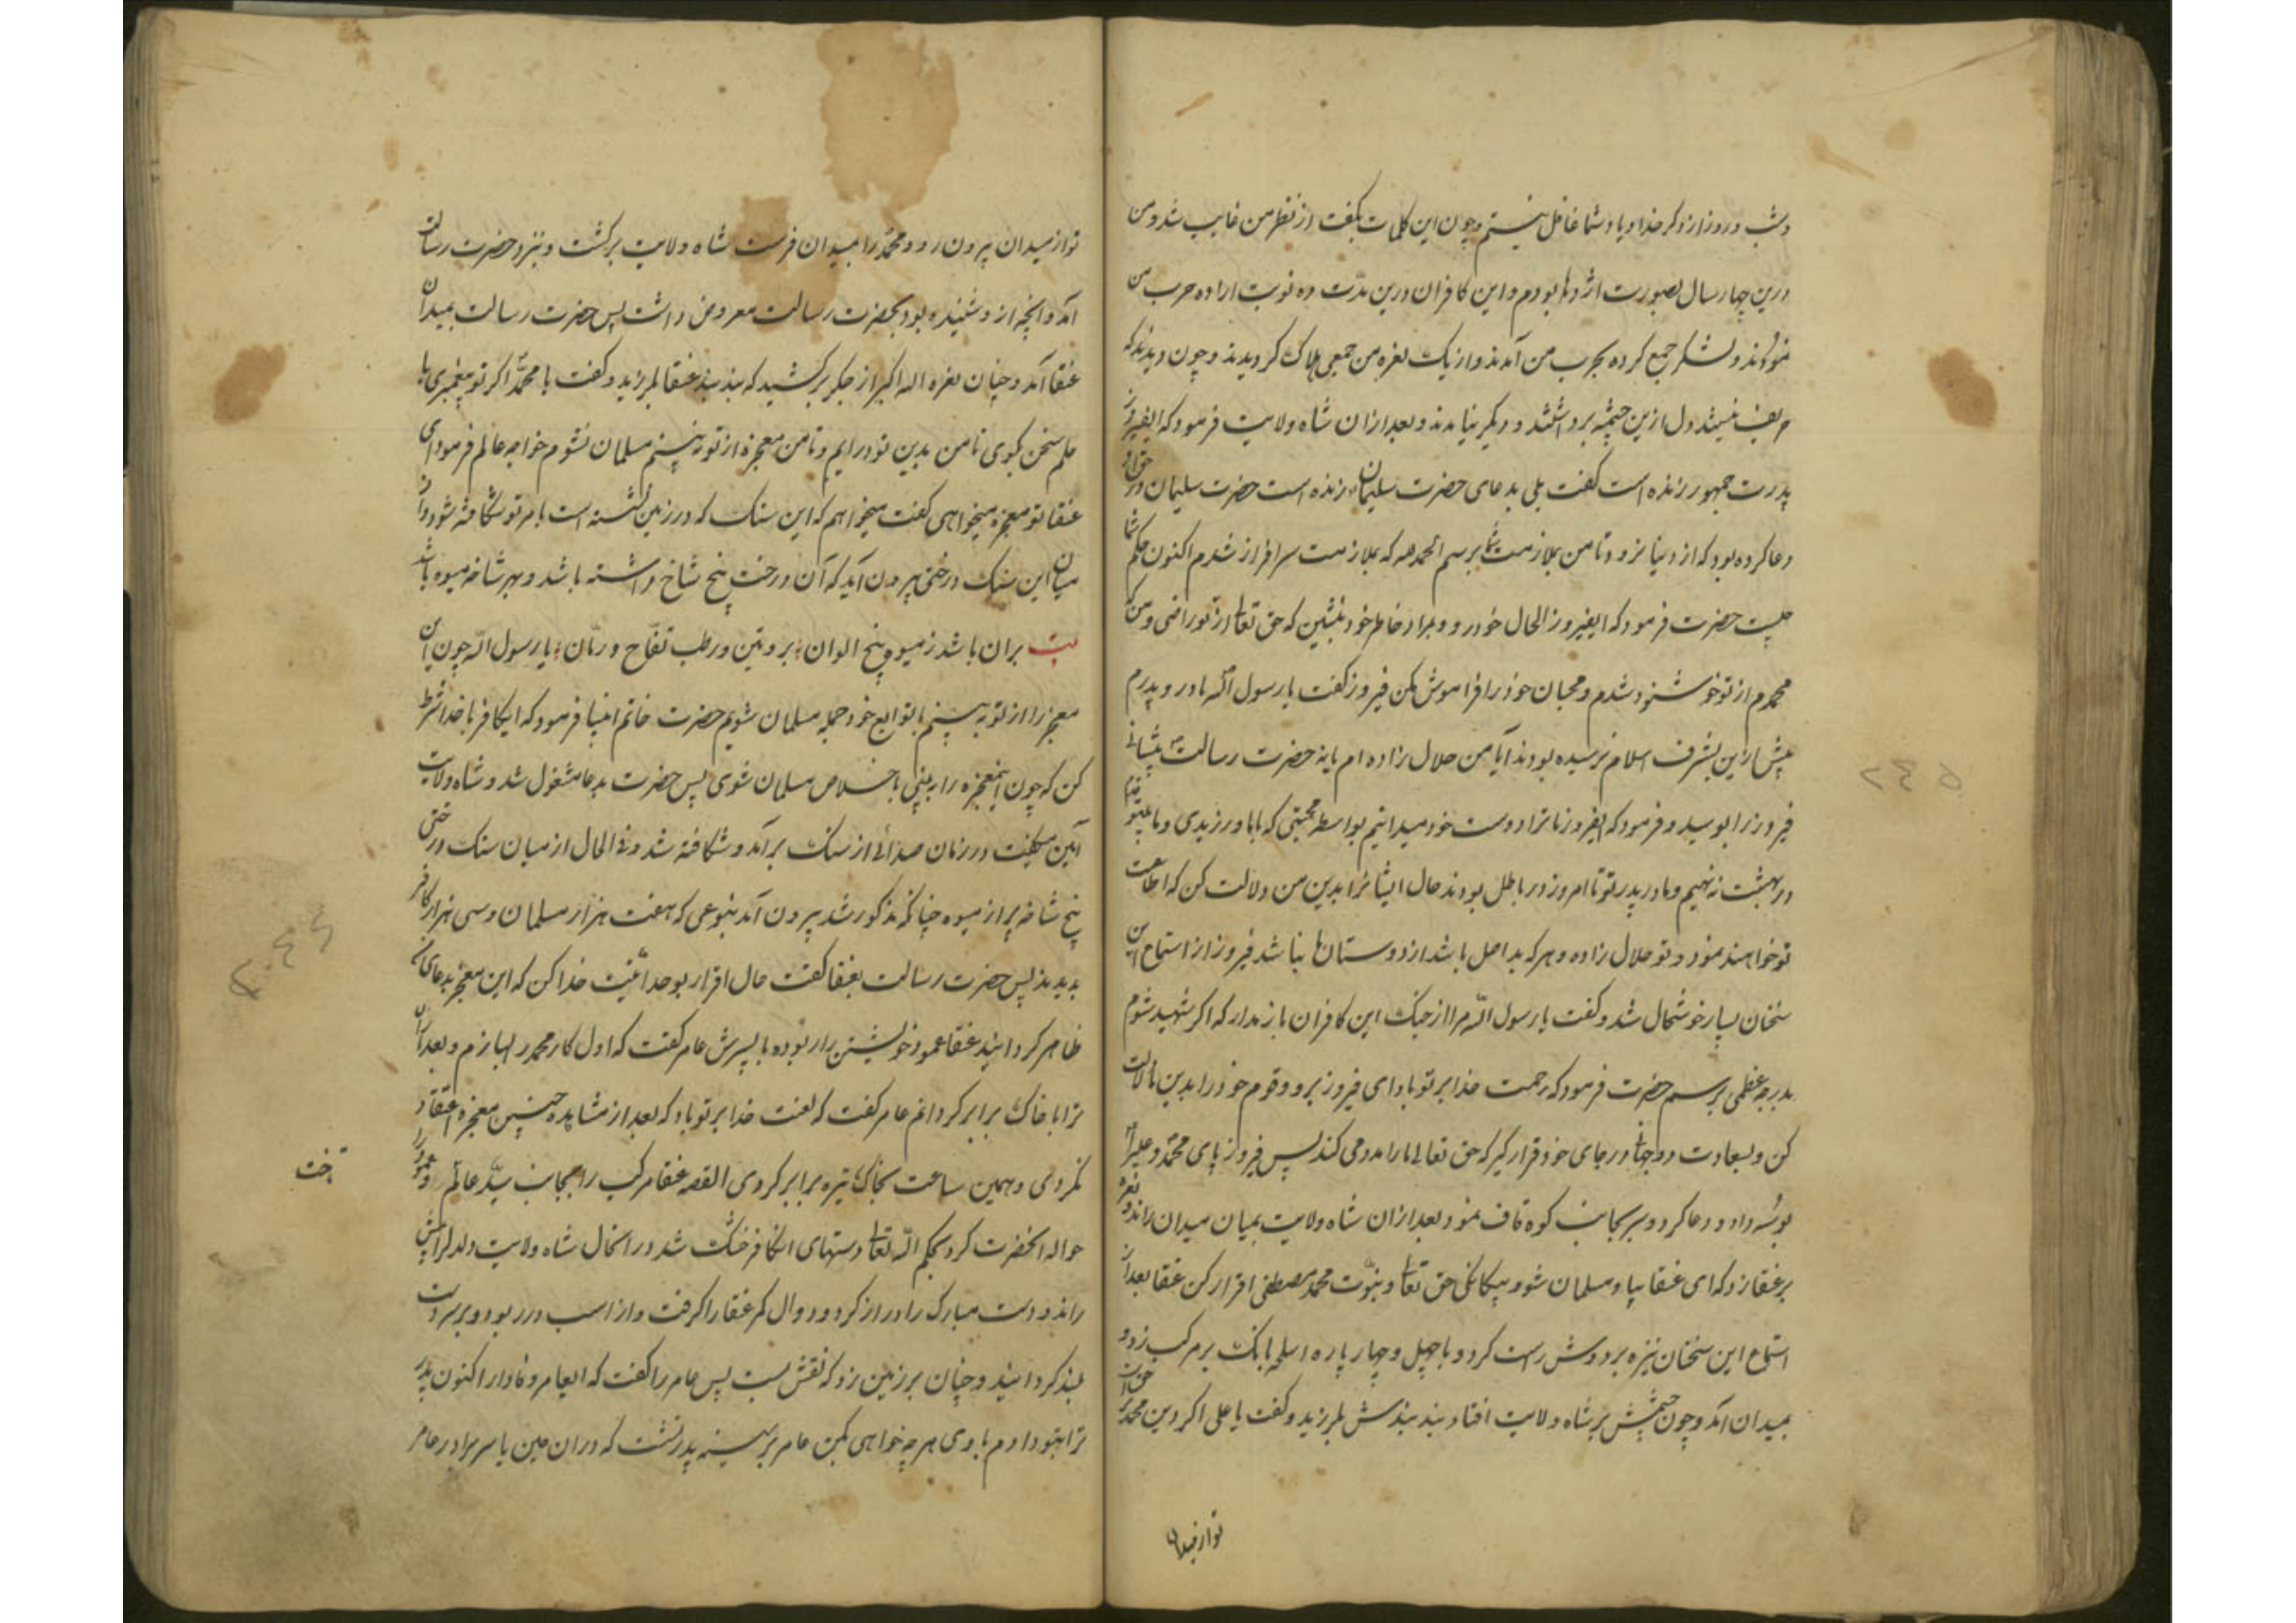 و شب و روز از ذکر خدا و یاد شما غافل نیستم و چون این کلمات بگفت از نظر من غایب شد و من
درین چهار سال بصورت اژدها بودم و این کافران درین مدّت ده نوبت اراده حرب من
نمودند و لشکر جمع کرده بحرب من آمدند و از یک نعره من جمعی هلاک کردیدند و چون دیدند که
حریف نیستند دل ازین چشمه برداشتند و دیکر نیامدند و بعد ازان شاه ولایت فرمود که ایفیروز
پدرت جمهور زنده است گفت بلی بدعای حضرت سلیمان زنده است حضرت سلیمان در حق او
دعا کرده بود که از دنیا نرود تا من بملازمت شما برسم الحمدلله که بملازمت سرافراز شدم اکنون حکم شما
چیست حضرت فرمود که ایفیروز الحال خود رو و بمراد خاطر خود بنشین که حق تعالی از تو راضی و من که
محمدم از تو خوشنود شدم و محبان خود را فراموش مکن فیروز گفت یا رسول الله مادر و پدرم
پیش ازین بشرف اسلام نرسیده بودند آیا من حلال زاده ام یا نه حضرت رسالت پیشانی
فیروز را بوسید و فرمود که ایفیروز ما ترا دوست خود میدانیم بواسطه محبتی که با ما ورزیدی و ما بیتو قدم
در بهشت ننهیم و مادر پدر تو تا امروز در باطل بودند حال ایشانرا بدین من دلالت کن که اطاعت
تو خواهند نمود و تو حلال زاده و هر که بد اصل باشد از دوستان ما نباشد فیروز از استماع این
سخنان بسیار خوشحال شد و گفت یا رسول الله مرا از جنک این کافران باز مدار که اکر شهید شوم
بدرجه عظمی برسم حضرت فرمود که رحمت خدا بر تو باد ای فیروز برو و قوم خود را بدین ما دلالت
کن و بسعادت دوجهانی در جای خود قرار گیر که حق تعالی ما را مدد می کند پس فیروز پای محمد و علی را
بوسه داد و دعا کرد و سر بجانب کوه قاف نمود بعد ازان شاه ولایت بمیان میدان راند و نعره
بر عنقا زد که ای عنقا بیا و مسلمان شو و بیکانکی حق تعالی و نبوّت محمد مصطفی اقرار کن عنقا بعد از
استماع این سخنان نیزه بر دوش راست کرد و با چهل و چهار پاره اسلحه بانک بر مرکب زد و
بمیدان آمد و چون چشمش بر شاه ولایت افتاد بند بندش بلرزید و گفت یا علی اکر دین محمد بر حق است
تو از میدان
تو از میدان بیرون رو و محمد را بمیدان فرست شاه ولایت برکشت و بنزد حضرت رسالت
آمد و آنچه ازو شنیده بود بحضرت رسالت معروض داشت پس حضرت رسالت بمیدان
عنقا آمد و چنان نعره الله اکبر از جکر برکشید که بند بند عنقا بلرزید و گفت یا محمد اکر تو پیغمبری با
علم سخن بکوی تا من بدین تو درایم و تا من معجزه از تو نه بینم مسلمان نشوم خواجه عالم فرمود ای
عنقا تو معجزه میخواهی گفت میخواهم که این سنک که در زمین نشسته است بامر تو شکافته شود و از
میان این سنک درختی بیرون آید که آن درخت پنج شاخ داشته باشد و بهر شاخه میوه باشد
بیت بران باشد ز میوه پنج الوان ؛ بر و تین و رطب تفّاح و رمّان ؛ یا رسول الله چون این
معجز را از تو به بینم با توابع خود جمله مسلمان شویم حضرت خاتم انبیا فرمود که ایکافر با خدا شرط
کن که چون اینمعجزه را به بینی باخلاص مسلمان شوی پس حضرت بدعا مشغول شد و شاه ولایت
آمین میکفت در زمان صدائی از سنک برآمد و شکافته شد و فی الحال از میان سنک درختی
پنج شاخه پر از میوه چنانکه مذکور شد بیرون آمد بنوعی که هفت هزار مسلمان و سی هزار کافر
بدیدند پس حضرت رسالت بعنقا گفت حال اقرار بوحدانیّت خدا کن که این معجز بدعای من
ظاهر کردانید عنقا عمود خویشتن را ربوده با پسرش عامر گفت که اول کار محمد را بسازم و بعد ازان
ترا با خاک برابر کردانم عامر گفت که لعنت خدا بر تو باد که بعد از مشاهده چنین معجزه اعتقاد
نکردی و همین ساعت بخاک تیره برابر کردی القصه عنقا مرکب را بجانب سیّد عالم تاخت و عمود را
حواله آنحضرت کرد بحکم الله تعالی دستهای آنکافر خشک شد درانحال شاه ولایت دلدل را پیش
راند و دست مبارک را دراز کرد و دوال کمر عنقا را کرفت و از اسب در ربود و بر سر دست
بلند کردانید و چنان بر زمین زد که نقش بست پس عامر را گفت که ایعامر وفادار اکنون پدر
ترا بتو دادم با وی هر چه خواهی بکن عامر بر سینه پدر نشست که دران حین یاسر برادر عامر